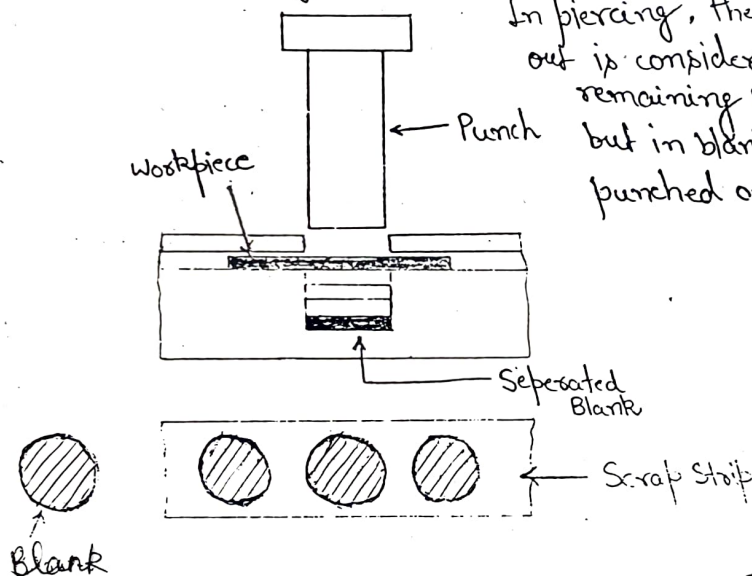 In piercing, the
out is
remaining
but in
punched
Punch
Workpiece
Seperated
Blank
Scrap Strip
Blank